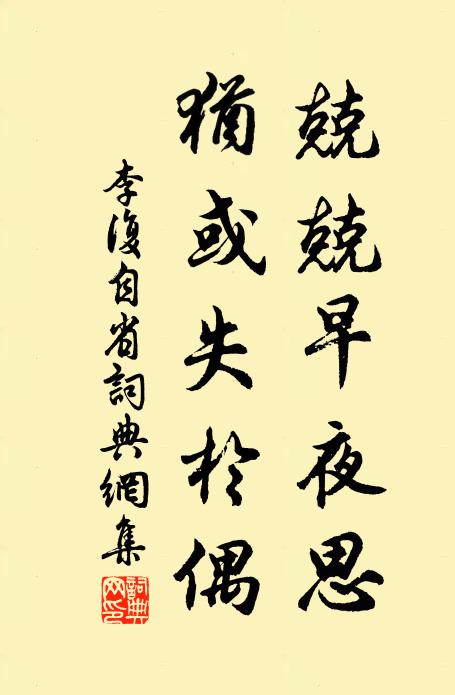 兢兢早夜思
猶或失於偶
李復自省詞典網集
詞典网印